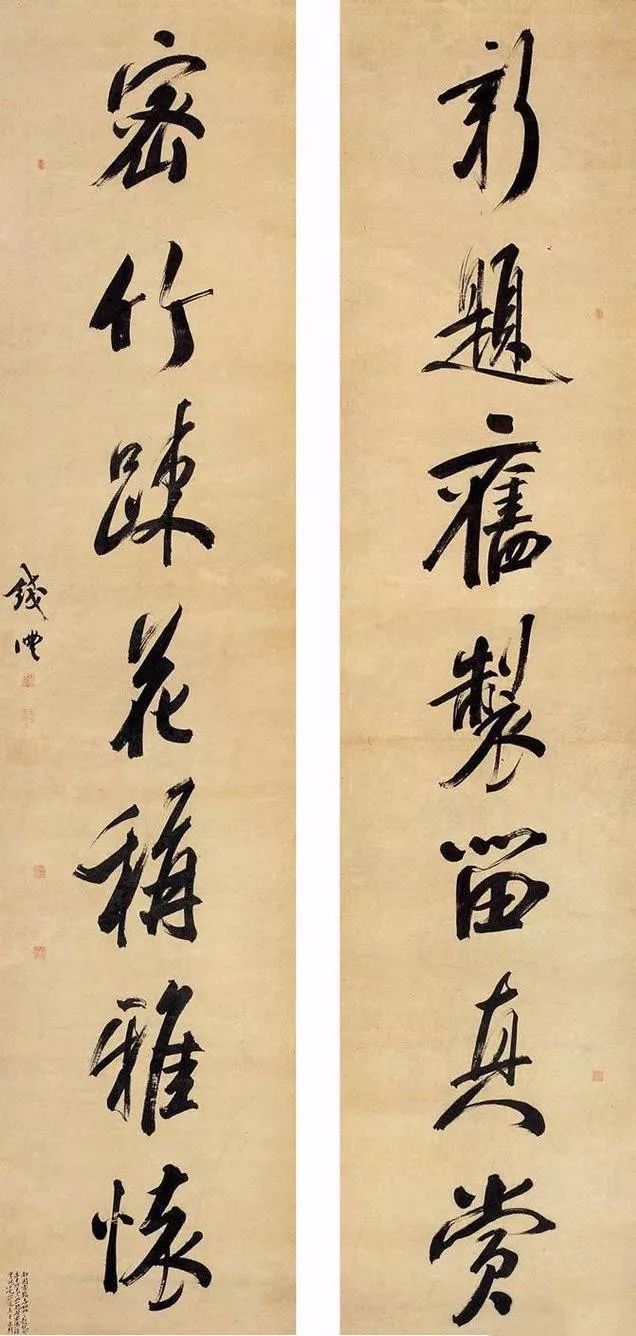 新題舊製留真賞
密竹踈花稱雅懷
錢灃